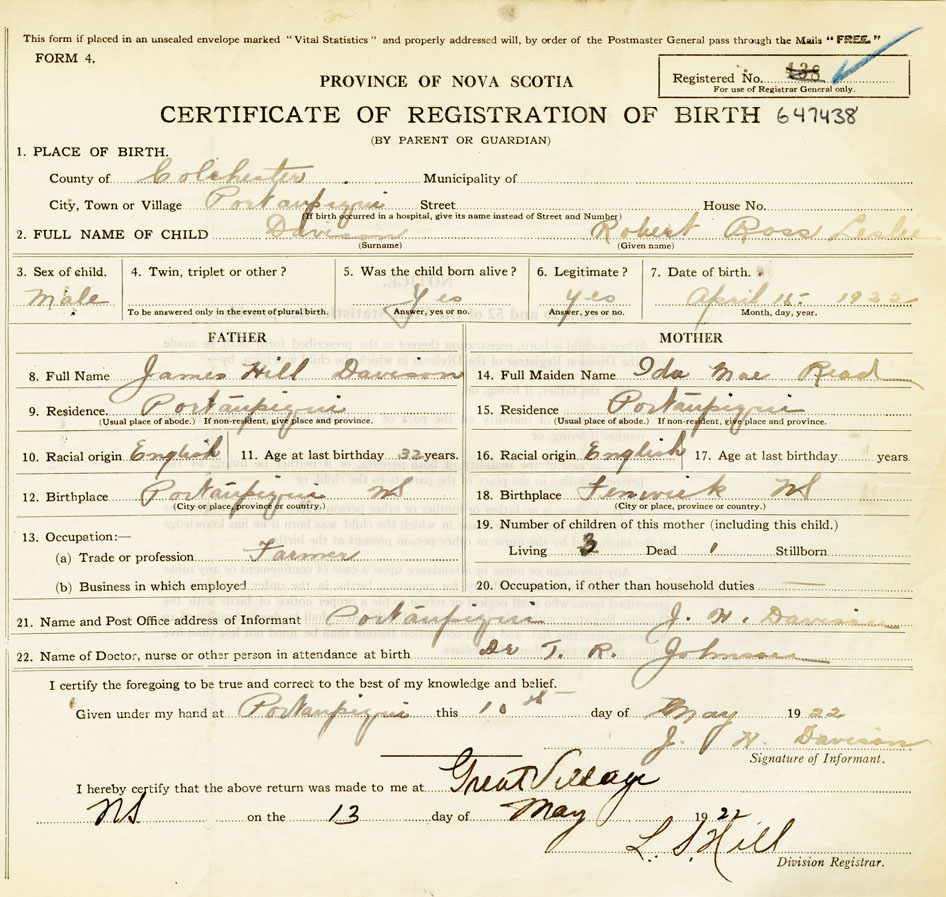 This form if placed in an unsealed envelope marked "Vital Statistics" and properly addressed will, by order of the Postmaster General pass through the Mails "FREE."
FORM 4.
PROVINCE OF NOVA SCOTIA
Registered No. 438
For use of Registrar General only.
CERTIFICATE OF REGISTRATION OF BIRTH 647438
(BY PARENT OR GUARDIAN)
1. PLACE OF BIRTH.
County of Colchester Municipality of
City, Town or Village Portaupique Street House No.
(If birth occurred in a hospital, give its name instead of Street and Number)
2. FULL NAME OF CHILD Davison Robert Ross Leslie
(Surname) (Given name)
3. Sex of child. 4. Twin, triplet or other? 5. Was the child born alive? 6. Legitimate? 7. Date of birth.
Male Yes yes April 15 1922
To be answered only in the event of plural birth. Answer, yes or no. Answer, yes or no. Month, day, year.
FATHER MOTHER
8. Full Name James Hill Davison 14. Full Maiden Name Ida Mae Read
9. Residence. Portaupique 15. Residence Portaupique
(Usual place of abode.) If non-resident, give place and province. (Usual place of abode.) If non-resident, give place and province.
10. Racial origin English 11. Age at last birthday 32 years. 16. Racial origin English 17. Age at last birthday years
12. Birthplace Portaupique NS 18. Birthplace Fenwick NS
(City or place, province or country.) (City or place, province or country.)
13. Occupation:— 19. Number of children of this mother (including this child.)
(a) Trade or profession Farmer Living 3 Dead 1 Stillborn
(b) Business in which employed 20. Occupation, if other than household duties —
21. Name and Post Office address of Informant Portaupique J. H. Davison
22. Name of Doctor, nurse or other person in attendance at birth Dr T. R. Johnson
I certify the foregoing to be true and correct to the best of my knowledge and belief.
Given under my hand at Portaupique this 10th day of May 1922
J. H. Davison
Signature of Informant.
I hereby certify that the above return was made to me at Great Village
NS on the 13 day of May 1922
L. S. Hill
Division Registrar.